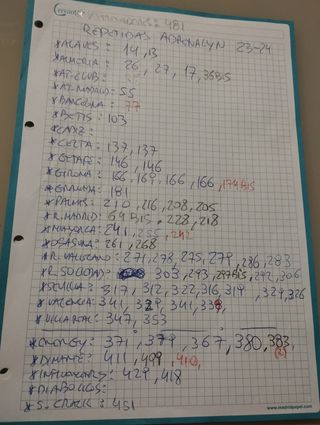 : 481
REPETIDAS ADRENALYN 23-24
*ALAVÉS: 14, 13
*ALMERIA: 26, 27, 17, 36BIS
*AT. CLUB:
*AT. MADRID: 55
*BARCELONA: 77
*BETIS: 103
*CADIZ:
*CELTA: 137, 137
*GETAFE: 146, 146
*GIRONA: 166, 169, 166, 166, 179 BIS
*GRANADA: 181
*PALMAS: 210, 216, 208, 205
*R. MADRID: 69 BIS, 228, 218
*MAYORCA: 241, 255, 242
*OSASUNA: 261, 268
*R. VALLECANO: 271, 278, 275, 279, 286, 283
*R. SOCIEDAD: 303, 293, 297BIS, 292, 306
*SEVILLA: 317, 312, 322, 316, 319, 324, 326
*VALENCIA: 341, 329, 341, 339
*VILLAREAL: 347, 353
*ENERGY: 371, 379, 367, 380, 383, (2)
*DYNAMITE: 411, 409, 410,
*INFLUENCERS: 429, 418
*DIABOLICOS:
*S. CRACK: 451
www.madridpapel.com